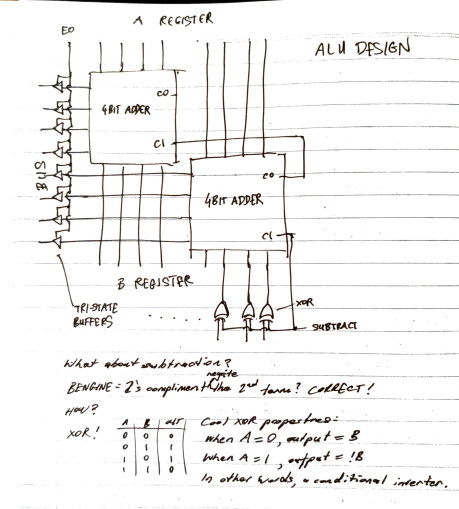 A REGISTER
EO
ALU DESIGN
CO
4BIT ADDER
CI
BUS
CO
4BIT ADDER
CI
B REGISTER
TRI-STATE
BUFFERS
XOR
SUBTRACT
What about subtraction?
negate
BENGINE = 2's compliment the 2nd term? CORRECT!
HOW?
XOR!
A B OUT
0 0 0
0 1 1
1 0 1
1 1 0
Cool XOR properties:
when A = 0, output = B
When A = 1, output = !B
In other words, a conditional inverter.